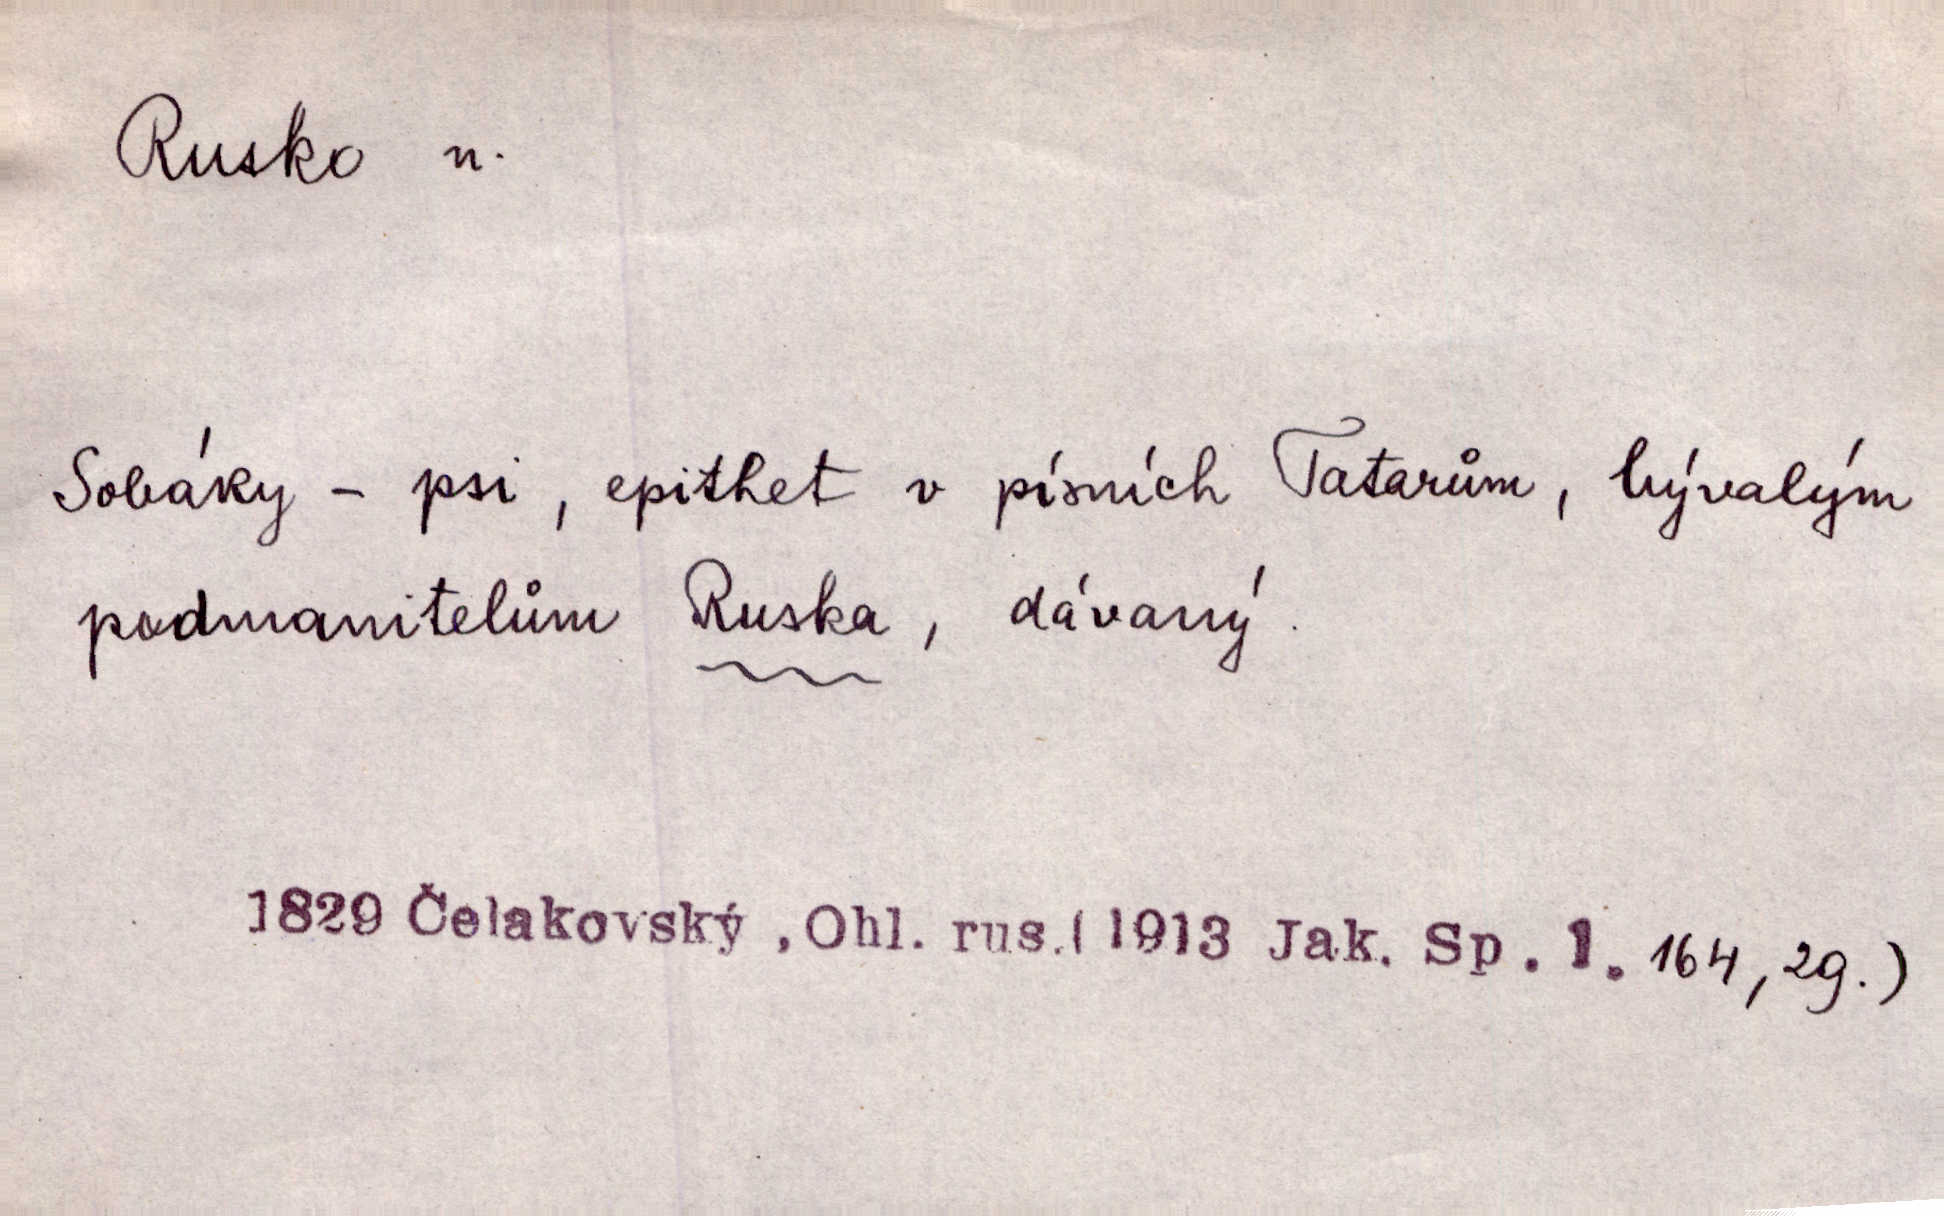 Rusko n.
Sobáky - psi, epithet v písních Tatarům, bývalým
podmanitelům Ruska, dávaný.
1829 Čelakovský, Ohl. rus. (1913 Jak. Sp. 1. 164, 29.)